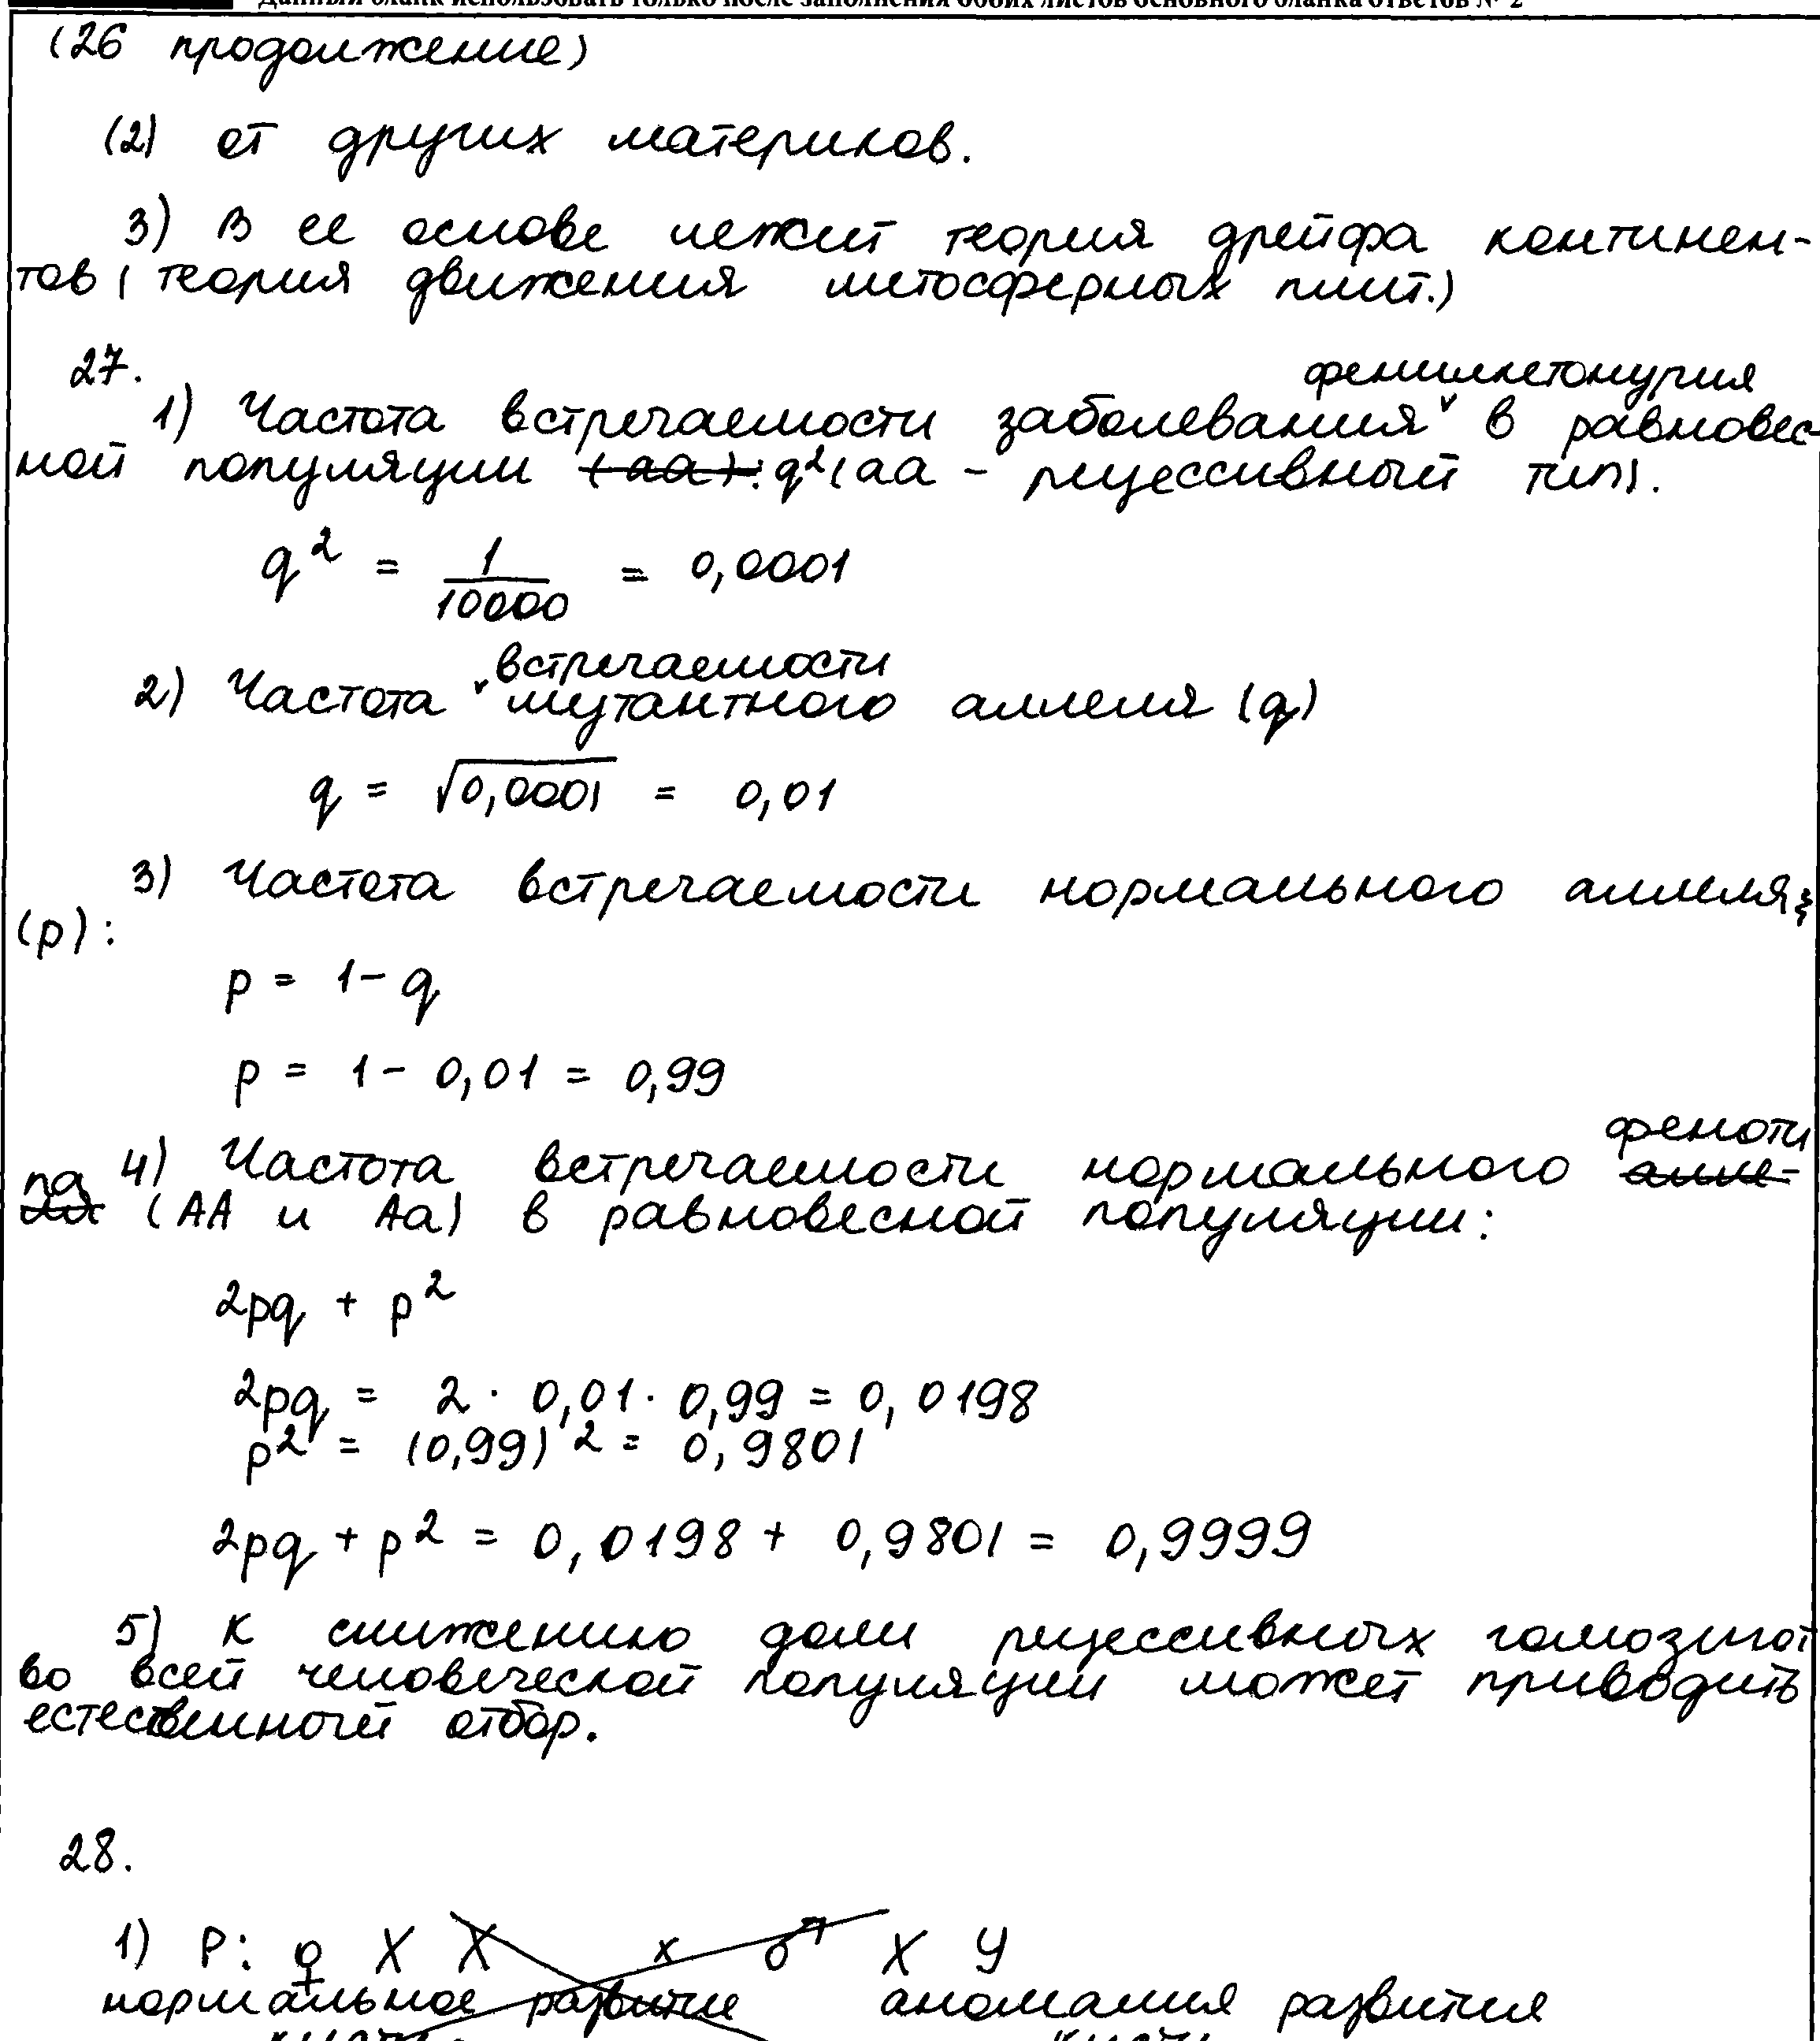 Данный бланк использовать только после заполнения обоих листов основного бланка ответов № 2
(26 продолжение)
(2) от других материков.
3) В ее основе лежит теория дрейфа континен-
тов (теория движения литосферных плит.)
27.
фенилкетонурия
1) Частота встречаемости заболевания ˅ в равновес-
ной популяции (aa): q²(aa - рецессивный тип).
q² = 1/10000 = 0,0001
встречаемости
2) Частота ˅ мутантного аллеля (q)
q = √0,0001 = 0,01
3) Частота встречаемости нормального аллеля
(p):
p = 1 - q
p = 1 - 0,01 = 0,99
феноти
4) Частота встречаемости нормального алле-
па
ля (AA и Aa) в равновесной популяции:
2pq + p²
2pq = 2 · 0,01 · 0,99 = 0,0198
p² = (0,99)² = 0,9801
2pq + p² = 0,0198 + 0,9801 = 0,9999
5) К снижению доли рецессивных гомозигот
во всей человеческой популяции может приводить
естественный отбор.
28.
1) P: ♀ X X x ♂ X Y
нормальное развитие аномалия развития